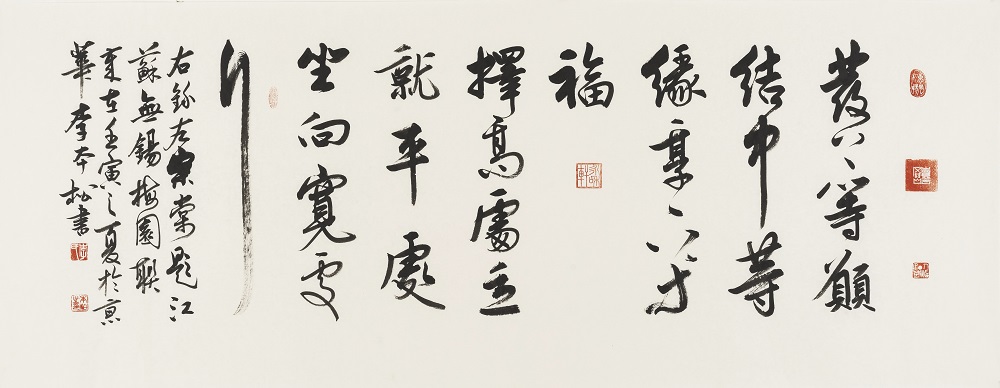 發上等願
結中等
緣享下等
福
擇高處立
就平處
坐向寬處
行
右錄左宗棠題江
蘇無錫梅園聯
歲在壬寅之夏於京
華李本松書